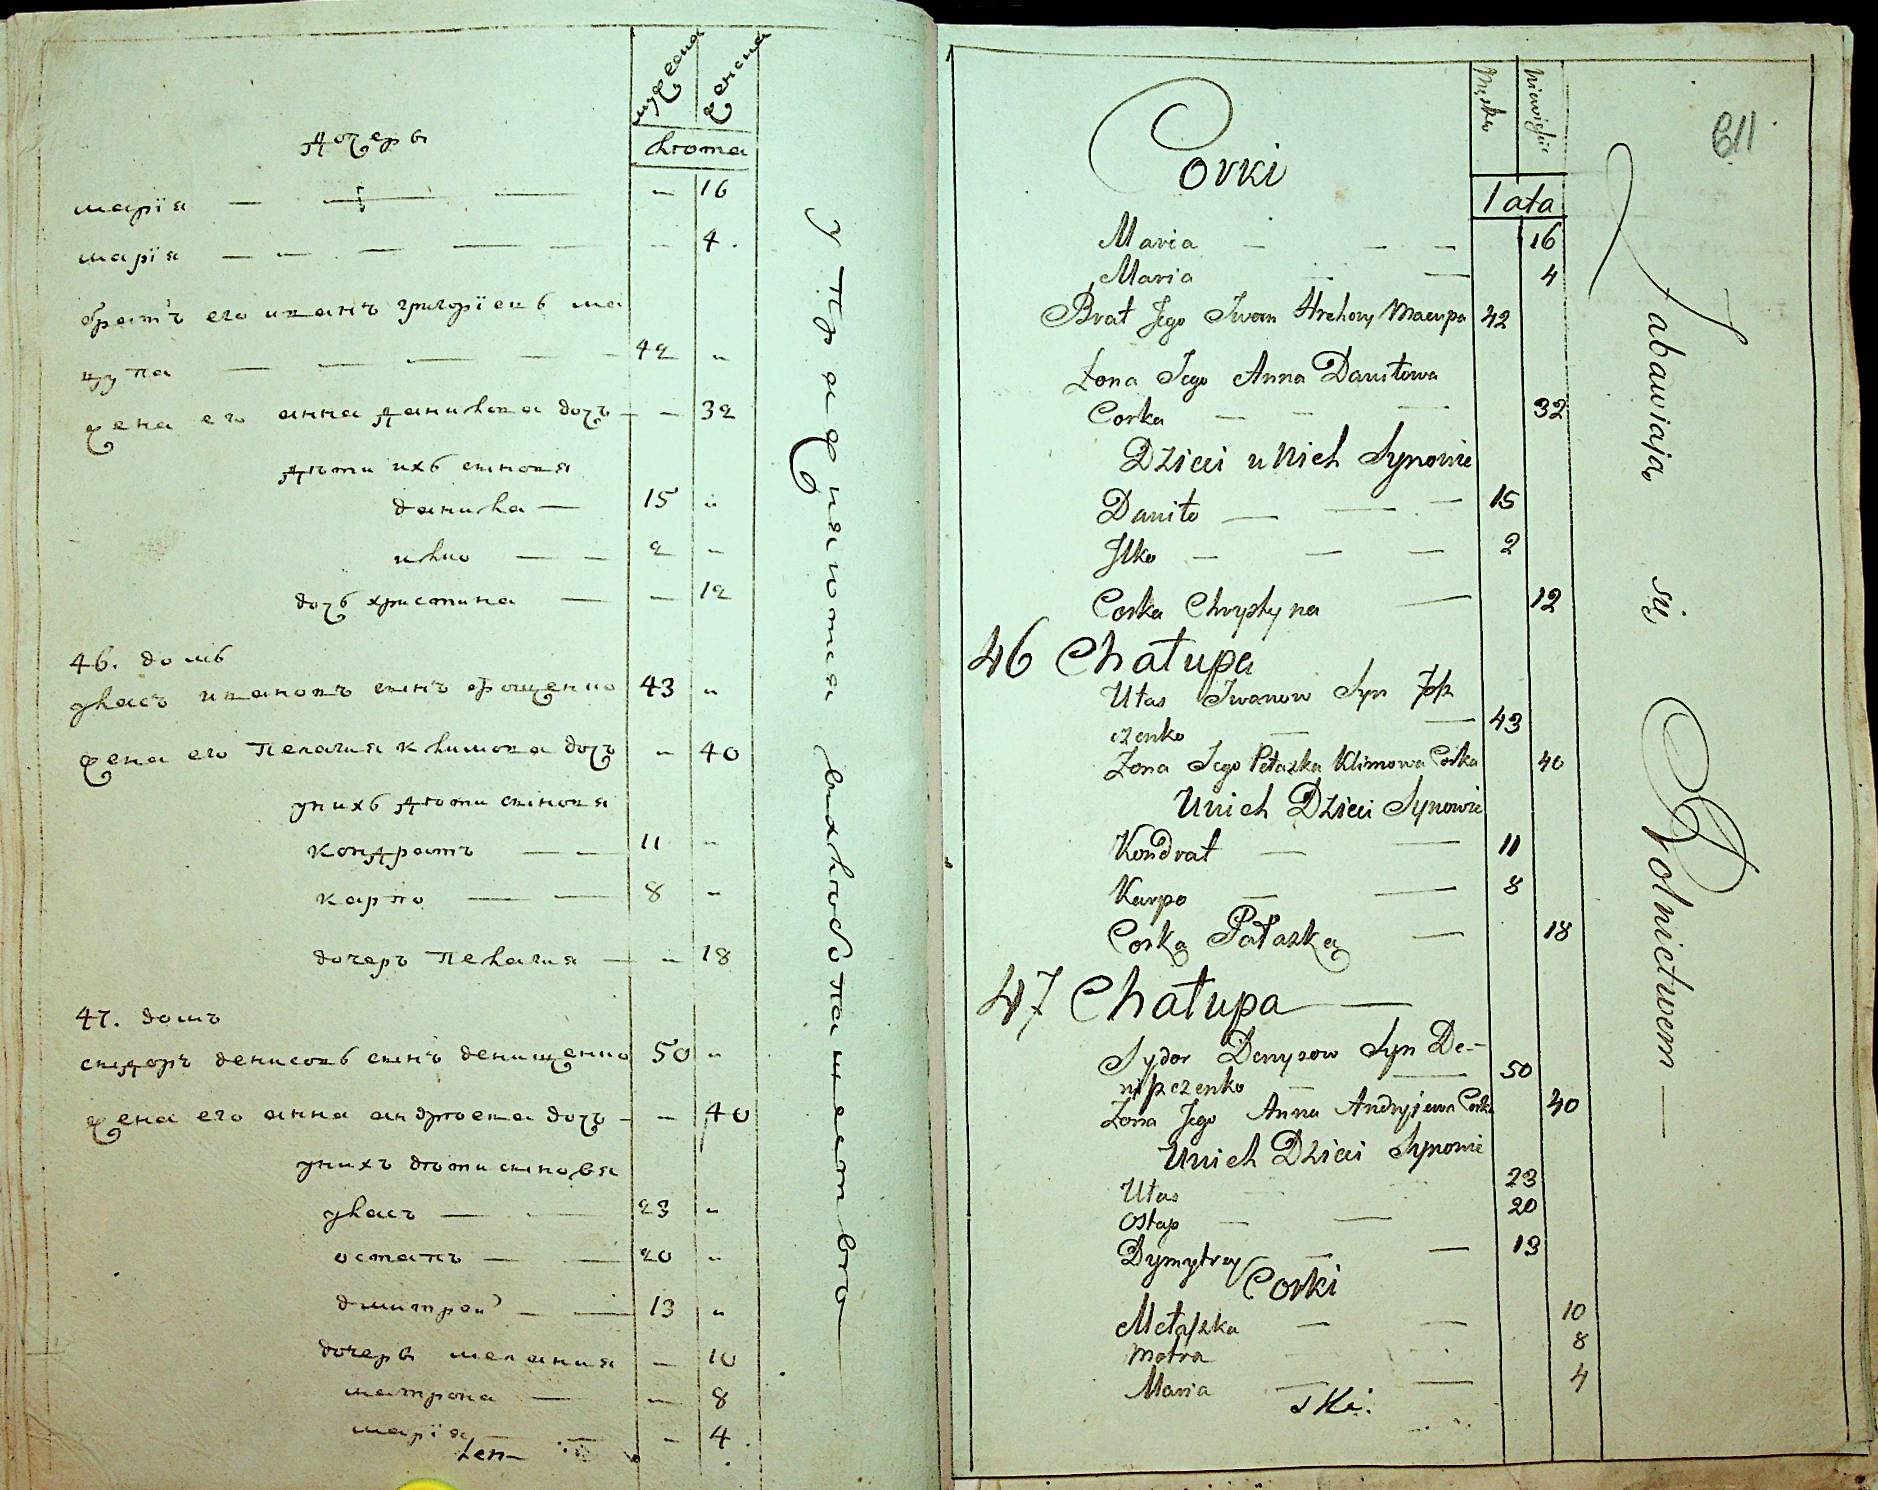 мужеска женска
лѣта
дочерѣ
марїя — — — " 16
марїя — — — — " 4
братъ его иванъ григорїевъ ма
цупа — — — — 42 "
жена его анна данилова дочъ — " 32
дѣти ихъ синовя
данила — 15 "
илко — — 2 "
дочъ христина — " 12
46. домъ
уласъ ивановъ синъ фощенко 43 "
жена его пелагия климова дочъ " 40
унихъ дѣти синовя
кондратъ — — 11 "
карпо — — 8 "
дочеръ пелагия — " 18
47. домъ
сидоръ денисовъ синъ денищенко 50 "
жена его анна андрѣева дочъ — " 40
унихъ дѣти синовя
уласъ — — 23 "
остапъ — — 20 "
дмитрей — — 13 "
дочерѣ мелания " 10
матрона — " 8
марїя — — " 4
упражняются хлѣбопашеством
611
Męska Niewieścia
Lata
Corki
Maria — — — 16
Maria — — 4
Brat Jego Iwan Hrehory Macupa 42
Żona Jego Anna Daniłowa
Corka — — — 32
Dzieci u Nich Synowie
Daniło — — — 15
Jlko — — — 2
Corka Chrystyna — 12
46 Chałupa
Ułas Iwanow Syn Fosz
czenko — — 43
Żona Jego Pełaszka Klimowa Corka 40
U nich Dzieci Synowie
Kondrat — — 11
Karpo — — 8
Corka Pałaszka — 18
47 Chałupa —
Sydor Denysow Syn De-
niszczenko — — 50
Żona Jego Anna Andryjewa Corka 40
U nich Dzieci Synowie
Ułas 23
Ostap — — 20
Dymytrey — — 13
Corki
Mełaszka — — 10
Motra 8
Maria — — 4
Zabawiają się Rolnictwem —